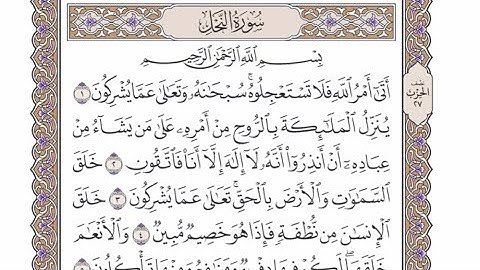 سُورَةُ النَّحْلِ
بِسْمِ اللَّهِ الرَّحْمَٰنِ الرَّحِيمِ
أَتَىٰٓ أَمْرُ ٱللَّهِ فَلَا تَسْتَعْجِلُوهُۚ سُبْحَٰنَهُۥ وَتَعَٰلَىٰ عَمَّا يُشْرِكُونَ ١
يُنَزِّلُ ٱلْمَلَٰٓئِكَةَ بِٱلرُّوحِ مِنْ أَمْرِهِۦ عَلَىٰ مَن يَشَآءُ مِنْ
عِبَادِهِۦٓ أَنْ أَنذِرُوٓا۟ أَنَّهُۥ لَآ إِلَٰهَ إِلَّآ أَنَا۠ فَٱتَّقُونِ ٢ خَلَقَ
ٱلسَّمَٰوَٰتِ وَٱلْأَرْضَ بِٱلْحَقِّۚ تَعَٰلَىٰ عَمَّا يُشْرِكُونَ ٣ خَلَقَ
ٱلْإِنسَٰنَ مِن نُّطْفَةٍ فَإِذَا هُوَ خَصِيمٌ مُّبِينٌ ٤ وَٱلْأَنْعَٰمَ
خَلَقَهَاۖ لَكُمْ فِيهَا دِفْءٌ وَمَنَٰفِعُ وَمِنْهَا تَأْكُلُونَ ٥
نصف
الحزب
٢٧